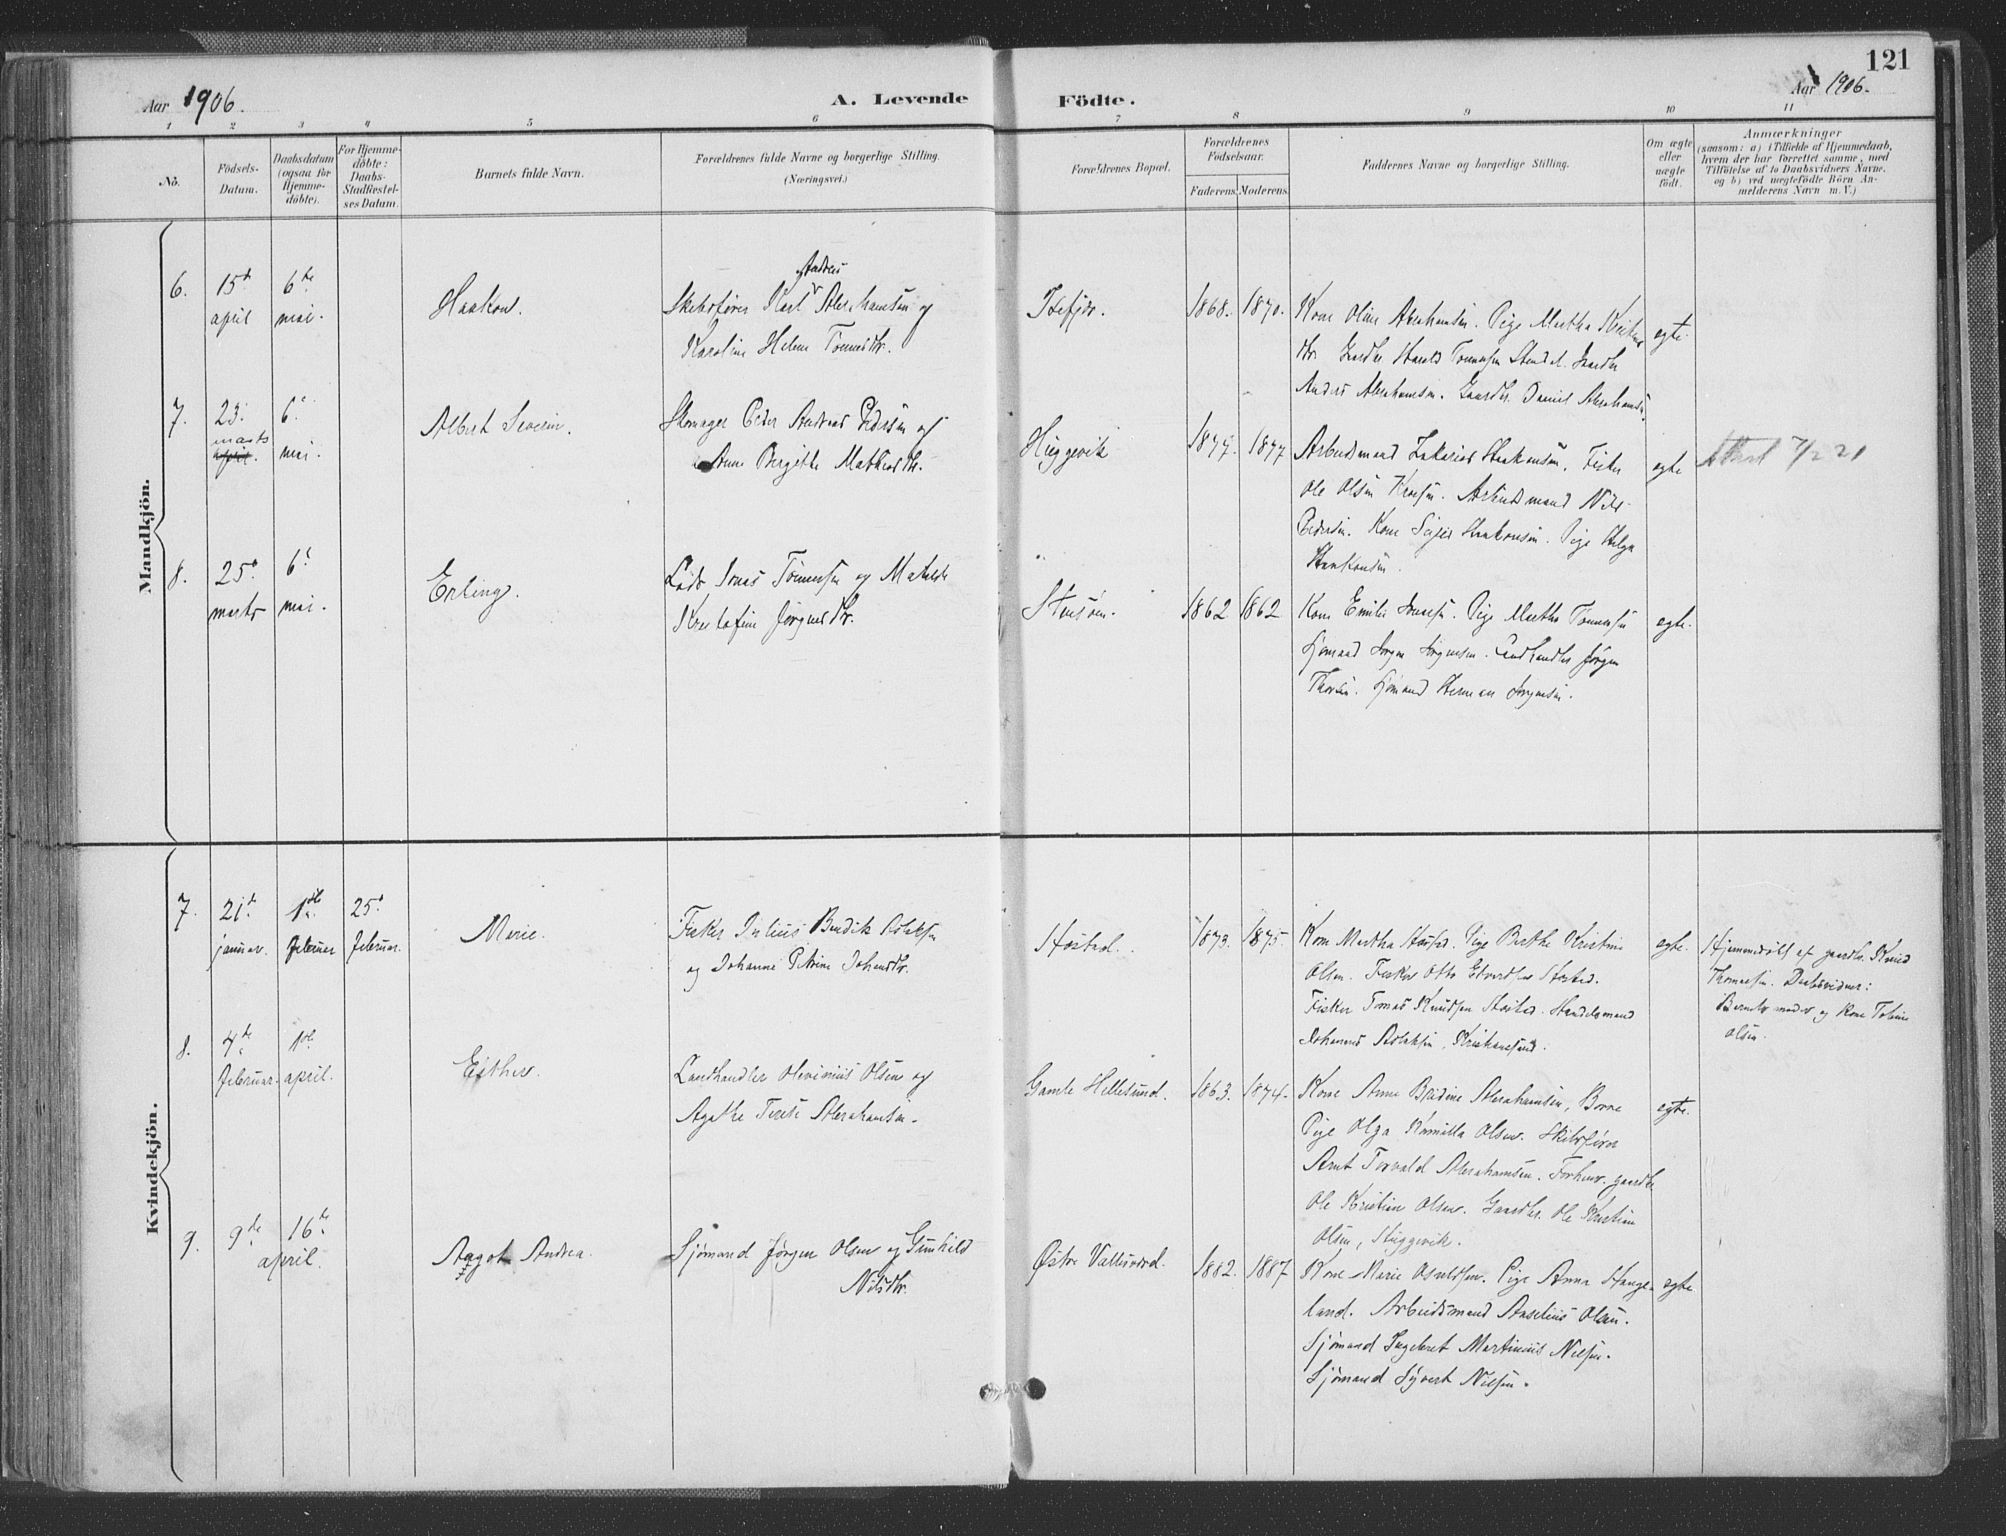 121
Aar 1906.
A. Levende Födte.
Aar 1906.
1 2 3 4 5 6 7 8 9 10 11
No.
Födsels-
Datum.
Daabsdatum
(ogsaa for
Hjemme-
döbte).
For Hjemme-
döbte:
Daabs-
Stadfæstel-
ses Datum.
Barnets fulde Navn.
Forældrenes fulde Navne og borgerlige Stilling.
(Næringsvei.)
Forældrenes Bopæl.
Forældrenes
Födselsaar.
Faderens. Moderens.
Faddernes Navne og borgerlige Stilling.
Om ægte
eller
uægte
födt.
Anmærkninger
(saasom: a) i Tilfælde af Hjemmedaab,
hvem der har forrettet samme, med
Tilföielse af to Daabsvidners Navne,
og b) ved uægtefödte Börn An-
melderens Navn m. V.)
Mandkjön.
6.
15de
april
6te
mai.
Haakon.
Andreas
Skibsfører Karl Abrahamsen og
Karoline Helene Tønnesdtr.
1868. 1870.
Kone Oline Abrahamsen. Pige Martha
dtr. Gaardbr. Harald Tønnesen Gaardbr.
Anders Abrahamsen. Gaardbr. Daniel Abrahamsen.
egte.
7.
23.
marts
april.
6.
mai.
Albert Severin.
Peder Andreas Pedersen og
Anne Bergithe Mathiasdtr.
Huggevik
1877
Arbeidsmand Zakarias Haakonsen. Fisker
Ole Olsen Arbeidsmand Nils
Pedersen. Kone Haakonsen. Pige Helga
Haakonsen.
egte
7/2 21
8.
25.
marts
6.
mai.
Erling.
Lods Jonas Tønnesen og Mathilde
Jørgensdtr.
1862 1862
Kone Emilie Pige Martha Tønnesen
Sjømand Jørgen Jørgensen. Landhandler Jørgen
Sjømand Herman Jørgensen.
egte.
Kvindekjön.
7.
21de
januar.
1ste
februar
25.
februar.
Marie.
Fisker Julius Bendik Aslaksen
og Johanne Petrine Johansdtr.
1873. 1875.
Kone Martha Pige Berthe Kristine
Olsen. Fisker Otto
Fisker Tomas Knudsen Handelsmand
Johannes Aslaksen, Kristianssand.
egte.
Hjemmedøbt af gaardbr. Knud
Thomassen. Daabsvidner:
Barnets moder og kone Tobine
Olsen.
8.
4de
februar.
1ste
april.
Esther.
Landhandler Olevinius Olsen og
Agathe Terese Abrahamsen.
Gamle Hellesund.
1863. 1874.
Kone Anne Abrahamsen, Borøe
Pige Olga Kamilla Olsen. Skibsfører
Arnt Torvald Abrahamsen. Forhenv. gaardbr.
Ole Kristian Olsen. Gaardbr. Ole Kristian
Olsen, Huggevik.
egte.
9.
9de
16de
april.
Aagot Andrea.
Sjømand Jørgen Olsen og Gunhild
Nilsdtr.
Østre Vallesund.
1882. 1887
Kone Marie Osuldsen. Pige Anna Hauge-
land. Arbeidsmand Anselius Olsen.
Sjømand Ingebret Martinius Nilsen.
Sjømand Syvert Nilsen.
egte